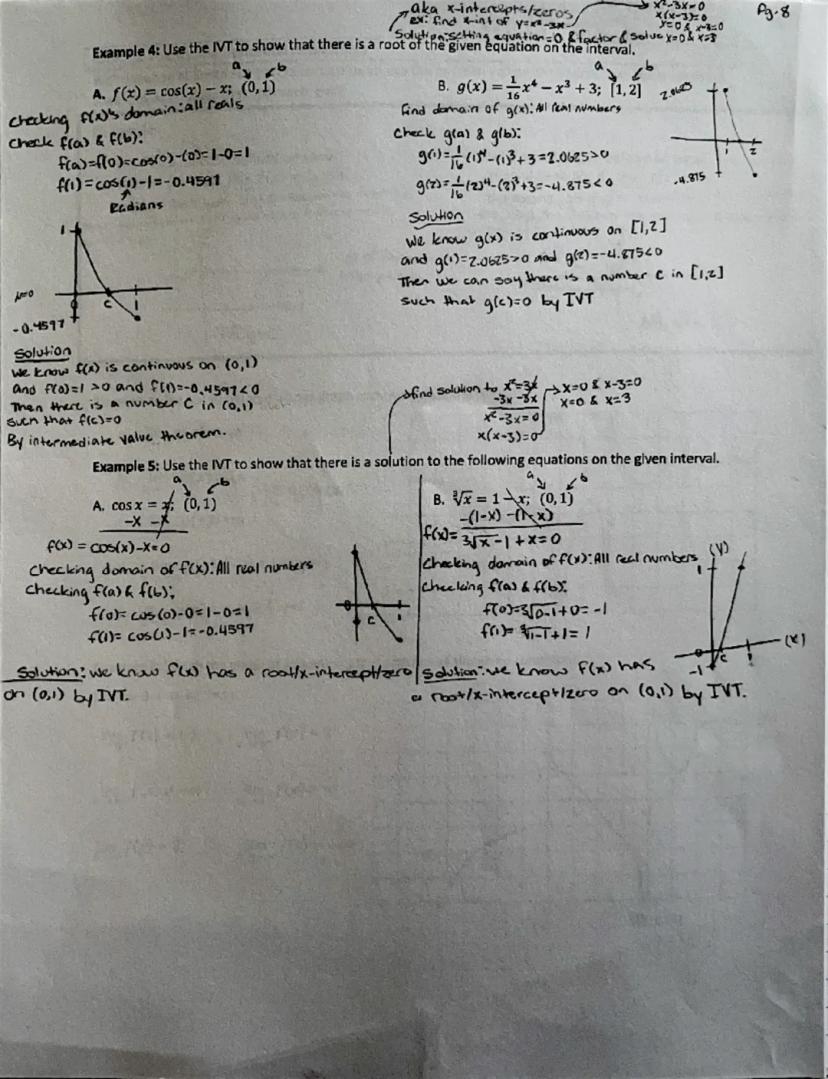 aka x-intercepts/zeros
ex: find x-int of y=x²-3x
Solution: setting equation=0 & factor & solve x=0 & x=3
x²-3x=0
x(x-3)=0
x-3=0
Pg.8
Example 4: Use the IVT to show that there is a root of the given equation on the interval.
a b
A. f(x) = cos(x) − x; (0,1)
checking f(x)'s domain: all reals
Check f(a) & f(b):
f(a)=f(0)=cos(0)-(0)=1-0=1
f(1)=cos(1)-1=-0.4597
Radians
1
c
1
-0.4597
Solution
We know f(x) is continuous on (0,1)
and f(0)=1>0 and f(1)=-0.4597<0
Then there is a number C in (0,1)
such that f(c)=0
By intermediate value theorem.
a b
B. g(x) = 1/16 x⁴ − x³ + 3; [1,2]
find domain of g(x): All real numbers
Check g(a) & g(b):
g(1)=1/16 (1)⁴-(1)³+3=2.0625>0
g(2)=1/16 (2)⁴-(2)³+3=-4.875<0
2.0625
1 2
-4.875
Solution
We know g(x) is continuous on [1,2]
and g(1)=2.0625>0 and g(2)=-4.875<0
Then we can say there is a number C in [1,2]
such that g(c)=0 by IVT
find solution to x²=3x
-3x -3x
x²-3x=0
x(x-3)=0
x=0 & x-3=0
x=0 & x=3
Example 5: Use the IVT to show that there is a solution to the following equations on the given interval.
a b
A. cos x = x; (0,1)
-x -x
f(x) = cos(x)-x=0
Checking domain of f(x): All real numbers
Checking f(a) & f(b):
f(0)= cos(0)-0=1-0=1
f(1)= cos(1)-1=-0.4597
c
Solution: we know f(x) has a root/x-intercept/zero
on (0,1) by IVT.
a b
B. ∛x = 1 − x; (0,1)
-(1-x) -(1-x)
f(x)= ∛x -1+x=0
Checking domain of f(x): All real numbers
Checking f(a) & f(b):
f(0)=∛0-1+0=-1
f(1)= ∛1-1+1=1
(y)
1
(x)
-1
c
1
Solution: we know f(x) has
a root/x-intercept/zero on (0,1) by IVT.